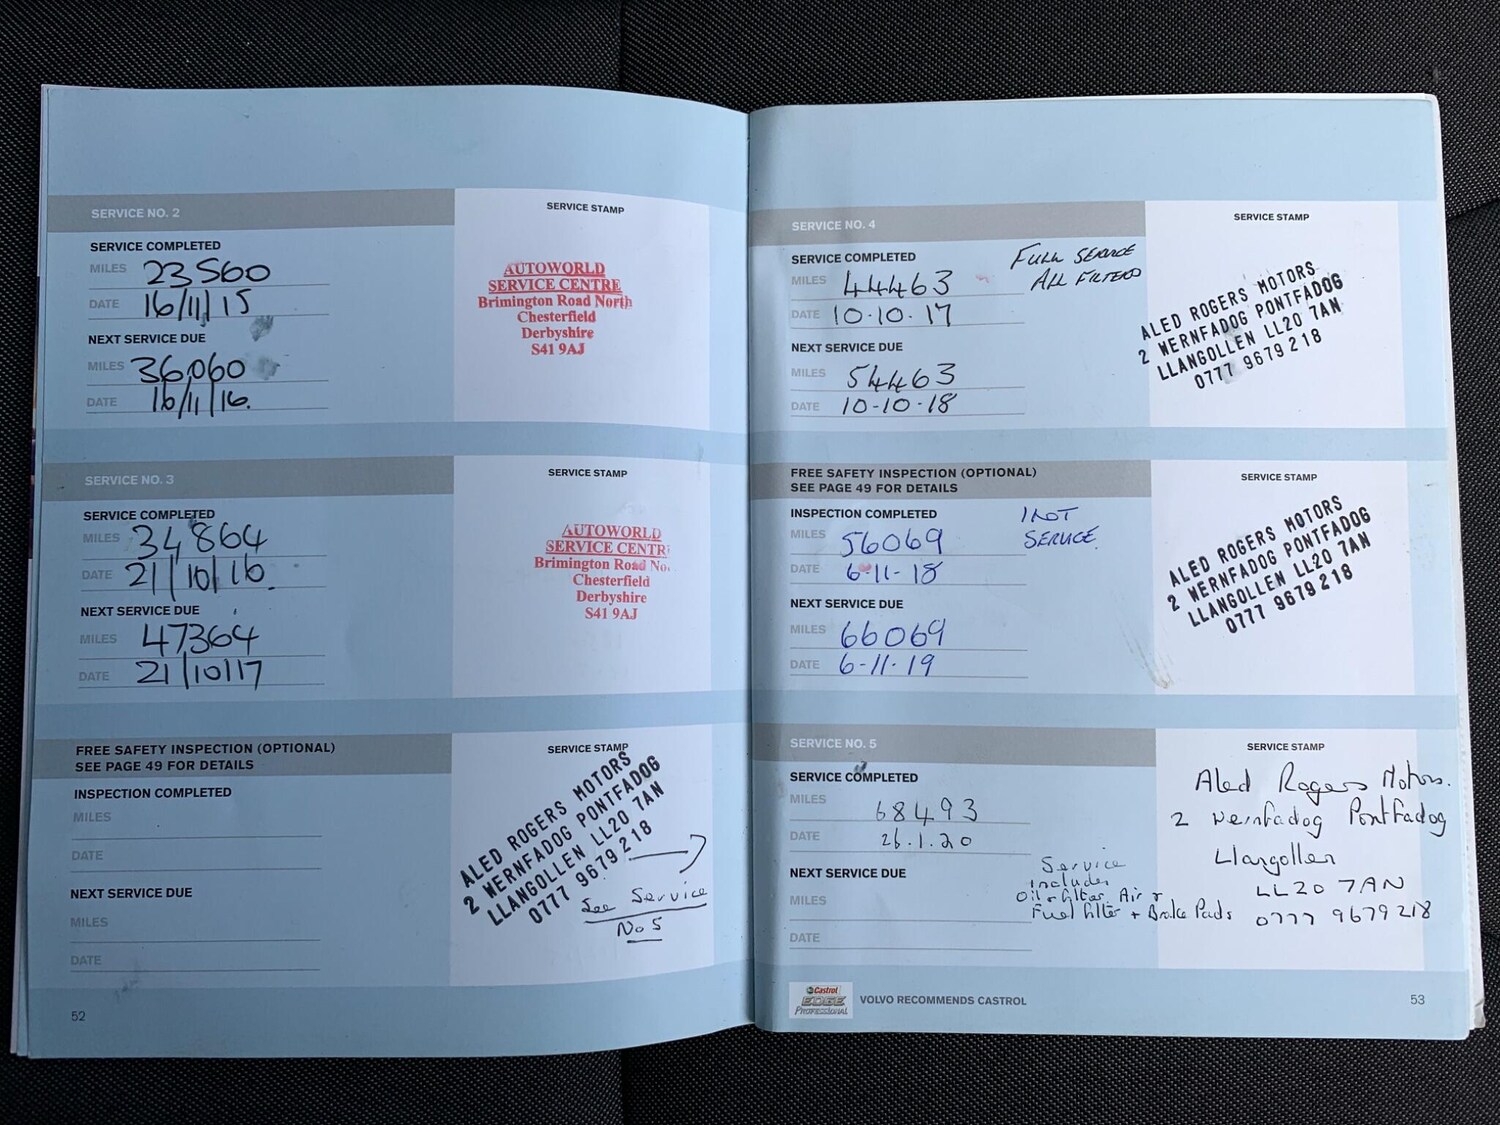 SERVICE NO. 2
SERVICE STAMP
SERVICE COMPLETED
MILES 23560
DATE 16/11/15
NEXT SERVICE DUE
MILES 36060
DATE 16/11/16.
AUTOWORLD
SERVICE CENTRE
Brimington Road North
Chesterfield
Derbyshire
S41 9AJ
SERVICE NO. 3
SERVICE STAMP
SERVICE COMPLETED
MILES 34864
DATE 21/10/16.
NEXT SERVICE DUE
MILES 47364
DATE 21/10/17
AUTOWORLD
SERVICE CENTR
Brimington Road No
Chesterfield
Derbyshire
S41 9AJ
FREE SAFETY INSPECTION (OPTIONAL)
SEE PAGE 49 FOR DETAILS
SERVICE STAMP
INSPECTION COMPLETED
MILES
DATE
NEXT SERVICE DUE
MILES
DATE
ALED ROGERS MOTORS
2 WERNFADOG PONTFADOG
LLANGOLLEN LL20 7AN
0777 9679 218
See Service
No 5
52
SERVICE NO. 4
SERVICE STAMP
SERVICE COMPLETED
MILES 44463
DATE 10-10-17
FULL SERVICE
ALL FILTERS
NEXT SERVICE DUE
MILES 54463
DATE 10-10-18
ALED ROGERS MOTORS
2 WERNFADOG PONTFADOG
LLANGOLLEN LL20 7AN
0777 9679 218
FREE SAFETY INSPECTION (OPTIONAL)
SEE PAGE 49 FOR DETAILS
SERVICE STAMP
INSPECTION COMPLETED
MILES 56069
DATE 6-11-18
SERVICE.
NEXT SERVICE DUE
MILES 66069
DATE 6-11-19
ALED ROGERS MOTORS
2 WERNFADOG PONTFADOG
LLANGOLLEN LL20 7AN
0777 9679 218
SERVICE NO. 5
SERVICE STAMP
SERVICE COMPLETED
MILES 68493
DATE 26.1.20
NEXT SERVICE DUE
MILES
DATE
Service
includes
Oil + filter, Air +
Fuel filter + Brake Pads
Aled Rogers Motors.
2 Wernfadog Pontfadog
Llangollen
LL20 7AN
0777 9679218
Castrol
EDGE
PROFESSIONAL
VOLVO RECOMMENDS CASTROL
53